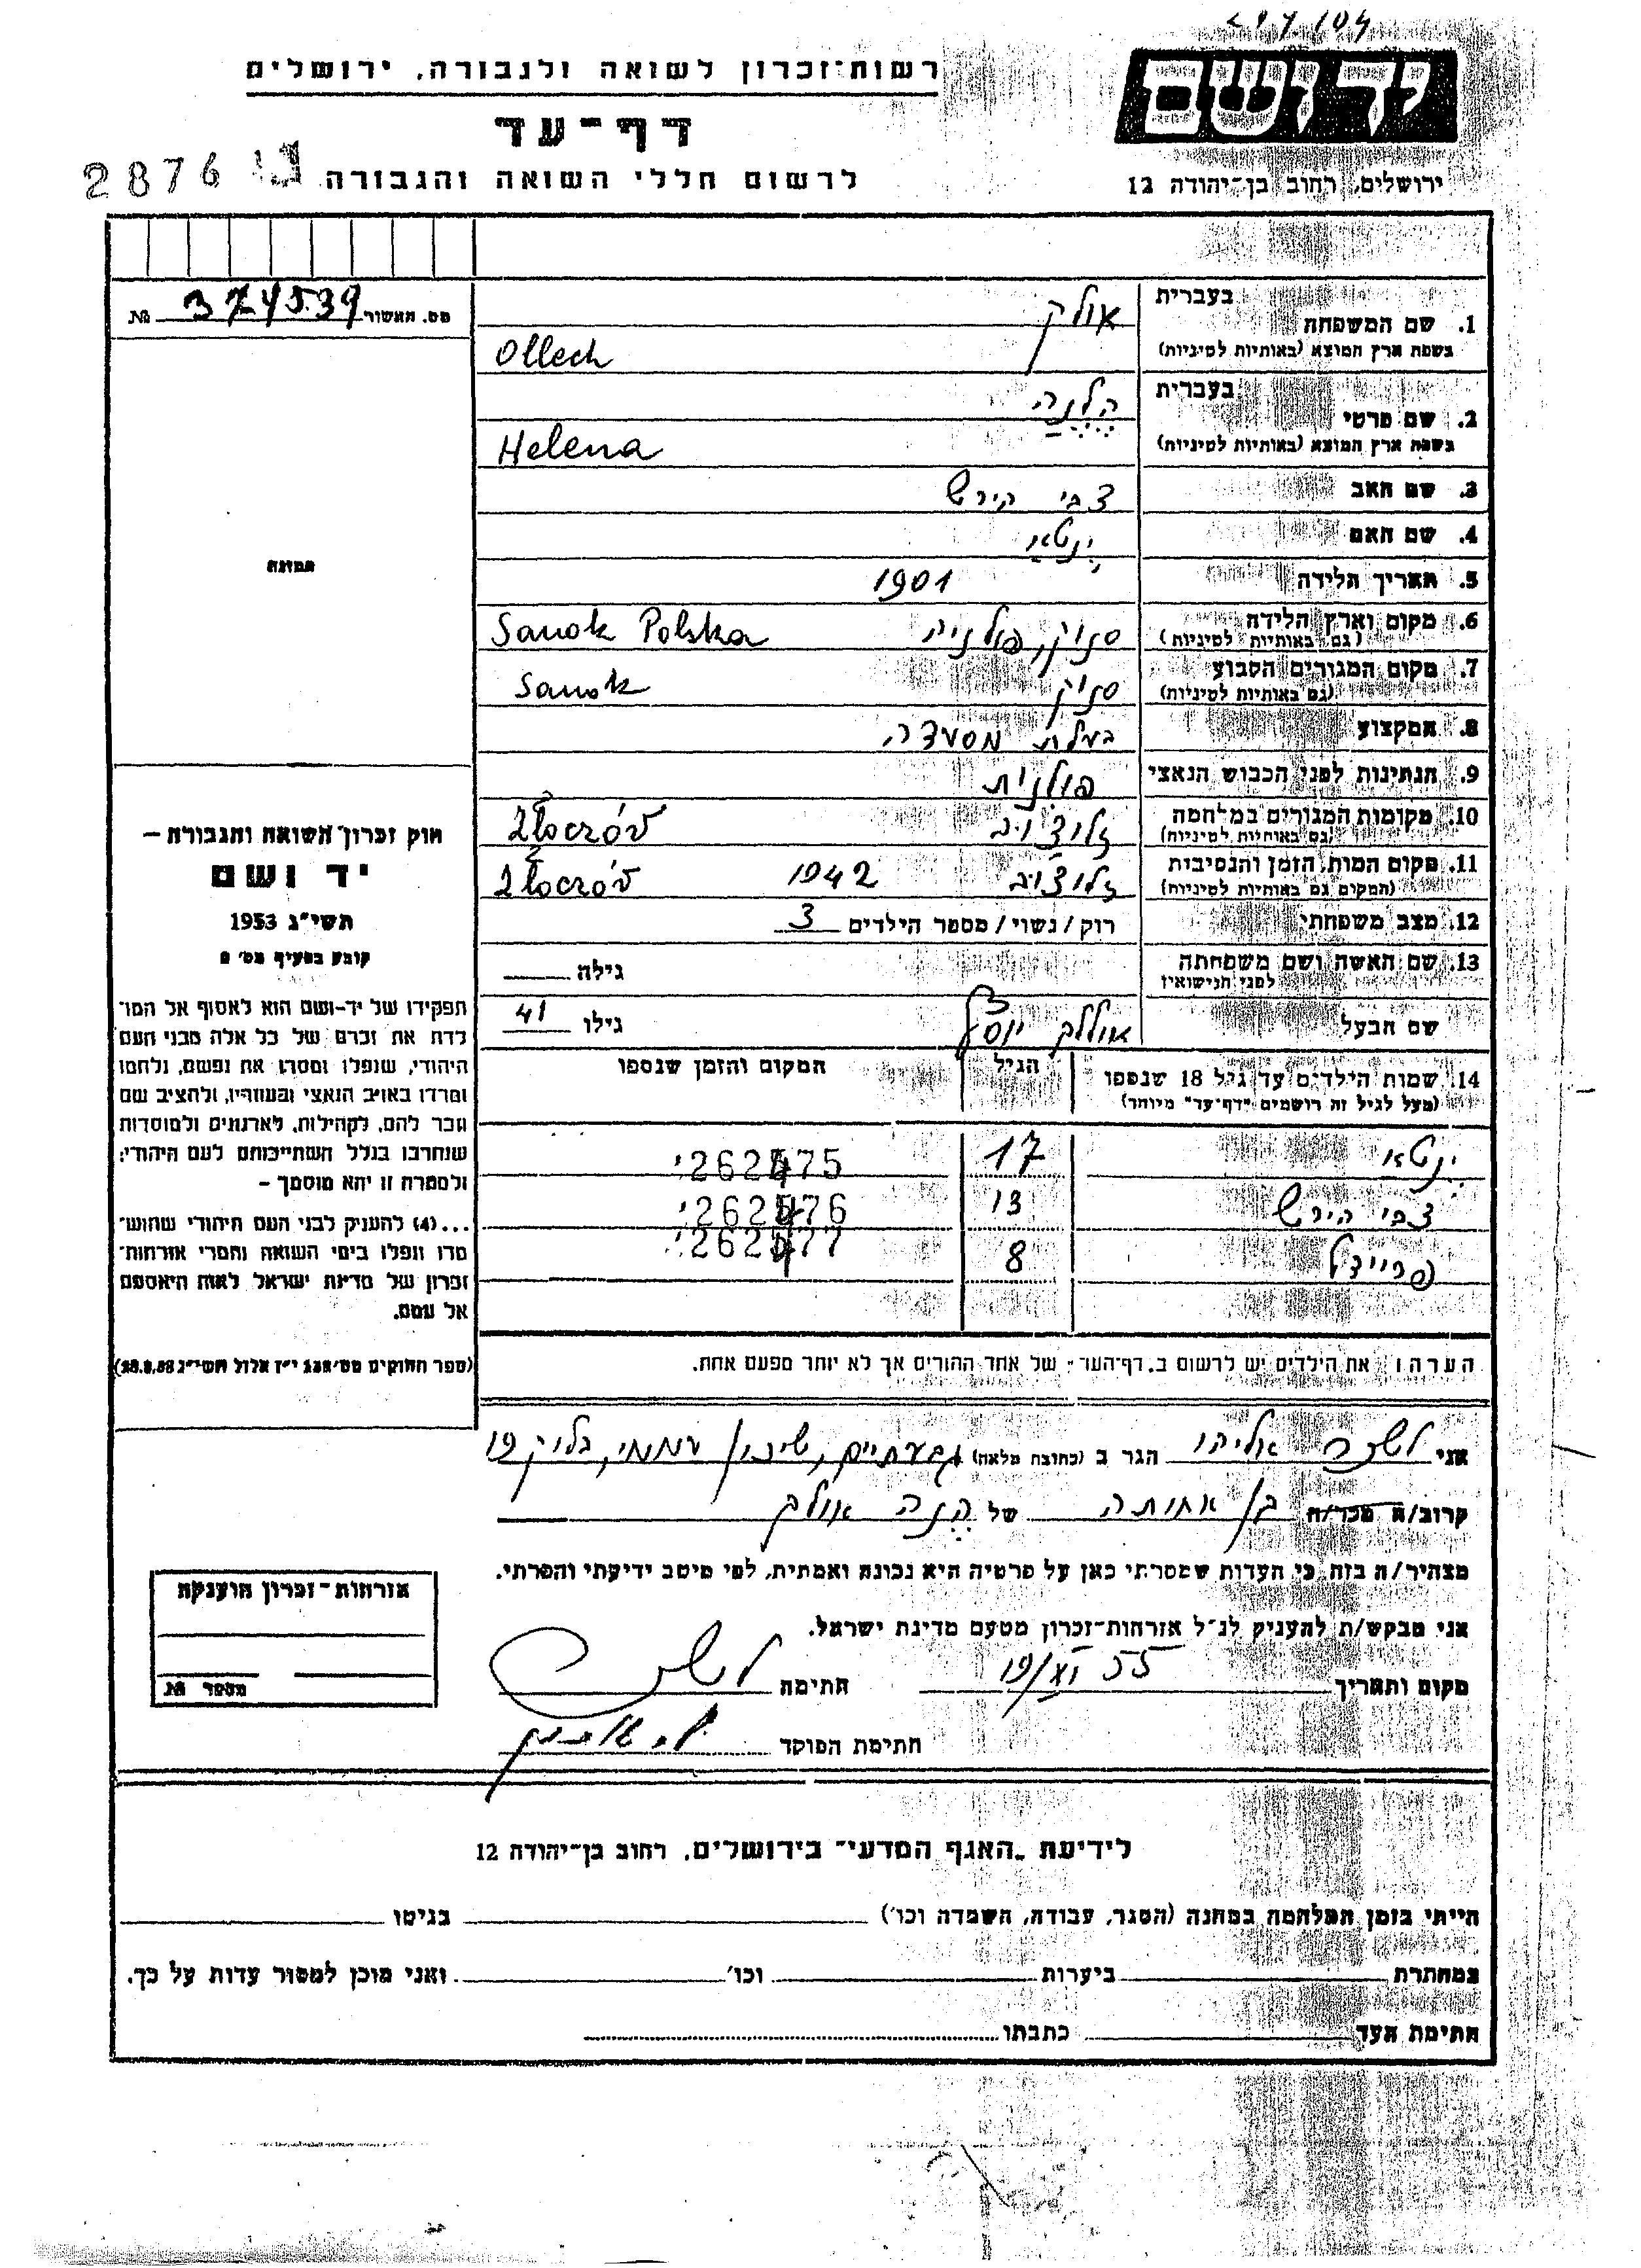 רשות־זכרון לשואה ולגבורה, ירושלים
יד ושם
דף־עד
לרשום חללי השואה והגבורה
ירושלים, רחוב בן־יהודה 12
2876
מס. תאשור 374539 №
1. שם המשפחה בעברית אולך
בשפת ארץ המוצא (באותיות לטיניות) Ollech
2. שם פרטי בעברית הלנה
בשפת ארץ המוצא (באותיות לטיניות) Helena
3. שם האב צבי הירש
4. שם האם ינטא
5. תאריך הלידה 1901
6. מקום וארץ הלידה (גם באותיות לטיניות) סנוק, פולניה Sanok Polska
7. מקום המגורים הקבוע (גם באותיות לטיניות) סנוק Sanok
8. המקצוע בעלת מסעדה
9. הנתינות לפני הכבוש הנאצי פולנית
10. מקומות המגורים במלחמה (גם באותיות לטיניות) זלוצ'וב Złoczów
11. מקום המות, הזמן והנסיבות (המקום גם באותיות לטיניות) זלוצ'וב 1942 Złoczów
12. מצב משפחתי רוק / נשוי / מספר הילדים 3
13. שם האשה ושם משפחתה לפני הנישואין גילה
שם הבעל אולך יוסף גילו 41
14. שמות הילדים עד גיל 18 שנספו
(מעל לגיל זה רושמים "דף־עד" מיוחד)
הגיל
המקום והזמן שנספו
ינטא 17 262475
צבי הירש 13 262476
פריידל 8 262477
הערה: את הילדים יש לרשום ב„דף־העד" של אחד ההורים אך לא יותר מפעם אחת.
תמונה
חוק זכרון השואה והגבורה –
יד ושם
תשי"ג 1953
קובע בסעיף מס'
תפקידו של יד־ושם הוא לאסוף אל המו־
לדת את זכרם של כל אלה מבני העם
היהודי, שנפלו ומסרו את נפשם, נלחמו
ומרדו באויב הנאצי ובעוזריו, ולהציב שם
וזכר להם, לקהילות, לארגונים ולמוסדות
שנחרבו בגלל השתייכותם לעם היהודי;
ולמטרה זו יהא מוסמך –
...(4) להעניק לבני העם היהודי שהוש־
מדו ונפלו בימי השואה והמרי אזרחות־
זכרון של מדינת ישראל לאות היאספם
אל עמם.
(ספר החוקים מס' 132 י"ז אלול תשי"ג 28.8.53)
אני אליהו הגר ב (כתובת מלאה) גבעתיים, שיכון
קרוב/ה מכר/ה בן אחותה של הנה אולך
מצהיר/ה בזה כי העדות שמסרתי כאן על פרטיה היא נכונה ואמתית, לפי מיטב ידיעתי והכרתי.
אני מבקש/ת להעניק לנ"ל אזרחות־זכרון מטעם מדינת ישראל.
מקום ותאריך 19/XI 55 חתימה
חתימת הפוקד
אזרחות־זכרון הוענקה
מספר №
לידיעת „האגף המדעי" בירושלים, רחוב בן־יהודה 12
הייתי בזמן המלחמה במחנה (הסגר, עבודה, השמדה וכו') בגיטו
במחתרת ביערות וכו' ואני מוכן למסור עדות על כך.
חתימת העד כתבתו